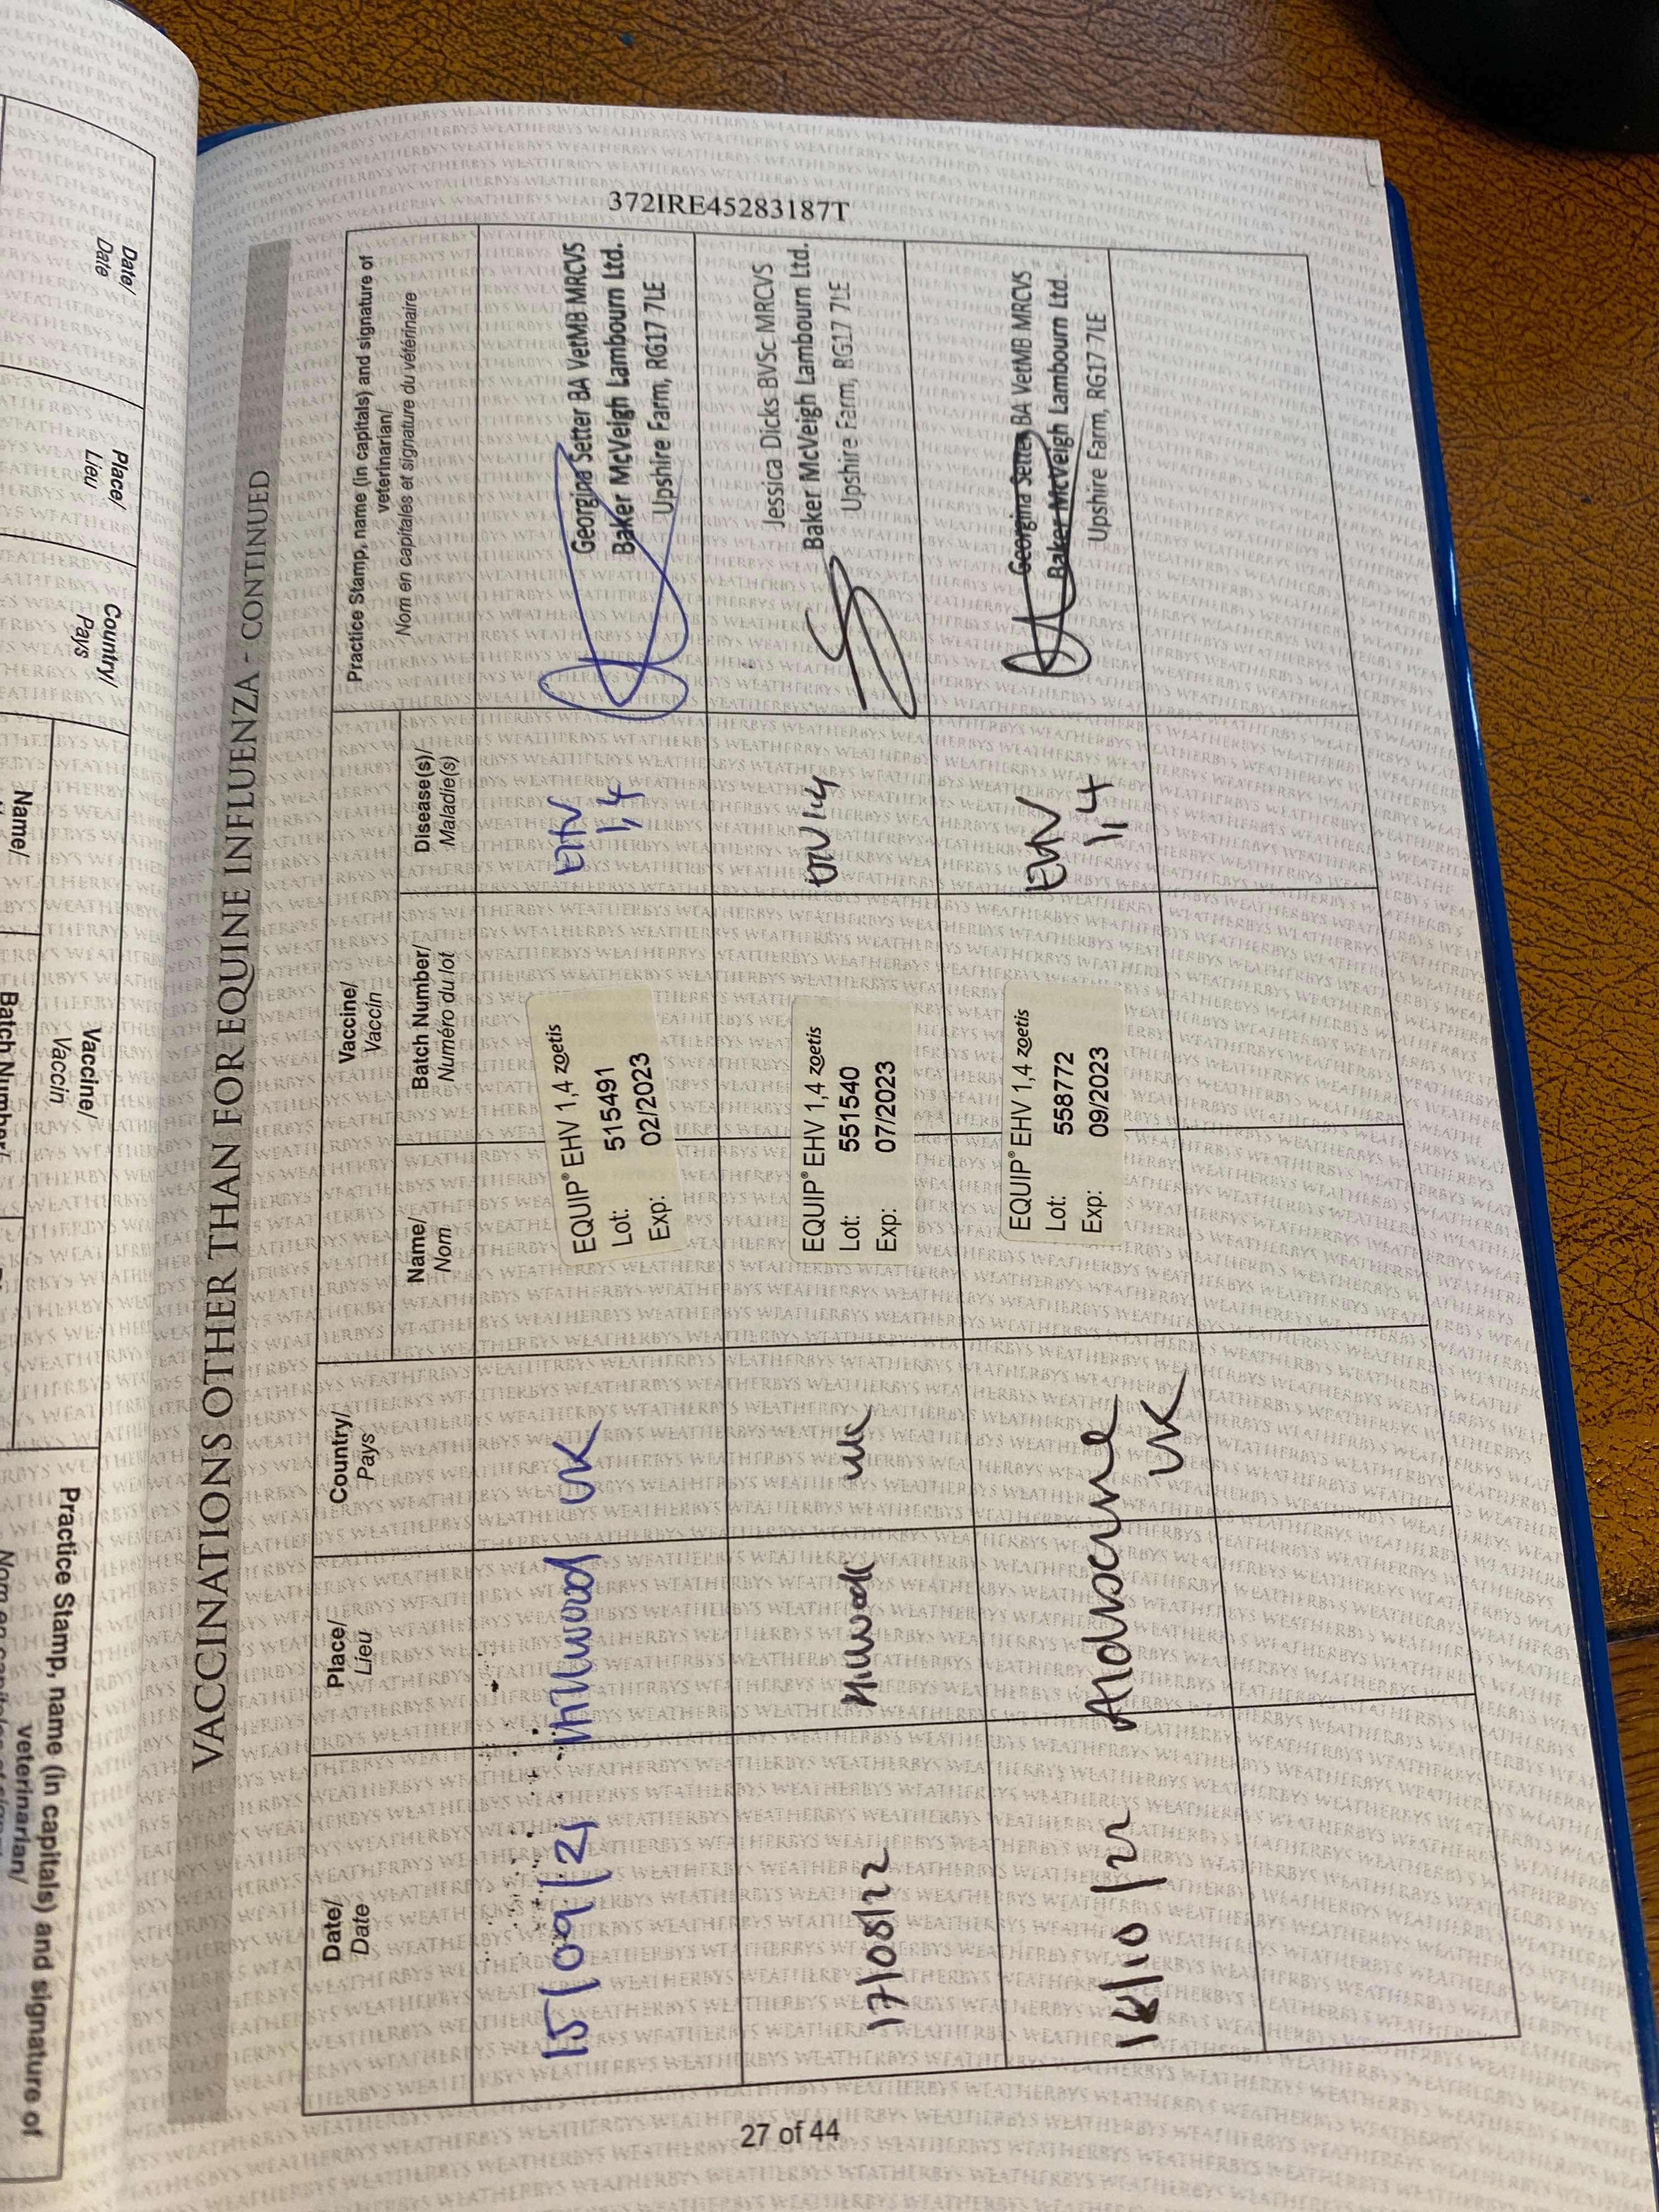 VACCINATIONS OTHER THAN FOR EQUINE INFLUENZA - CONTINUED
Date/
Date
Place/
Lieu
Country/
Pays
Vaccine/
Vaccin
Name/
Nom
Batch Number/
Numéro du lot
Disease(s)/
Maladie(s)
Practice Stamp, name (in capitals) and signature of
veterinarian/
Nom en capitales et signature du vétérinaire
15/09/21
Whitwood
UK
EQUIP® EHV 1,4 zoetis
Lot: 515491
Exp: 02/2023
EHV
1,4
Georgina Setter BA VetMB MRCVS
Baker McVeigh Lambourn Ltd.
Upshire Farm, RG17 7LE
17/08/22
UK
EQUIP® EHV 1,4 zoetis
Lot: 551540
Exp: 07/2023
Jessica Dicks BVSc MRCVS
Baker McVeigh Lambourn Ltd.
Upshire Farm, RG17 7LE
/10/22
Aldbourne
UK
EQUIP® EHV 1,4 zoetis
Lot: 558772
Exp: 09/2023
EHV
1,4
Georgina Setter BA VetMB MRCVS
Baker McVeigh Lambourn Ltd.
Upshire Farm, RG17 7LE
372IRE45283187T
27 of 44
Date/
Date
Place/
Lieu
Country/
Pays
Vaccine/
Vaccin
Name/
Batch Number/
Practice Stamp, name (in capitals) and signature of
veterinarian/